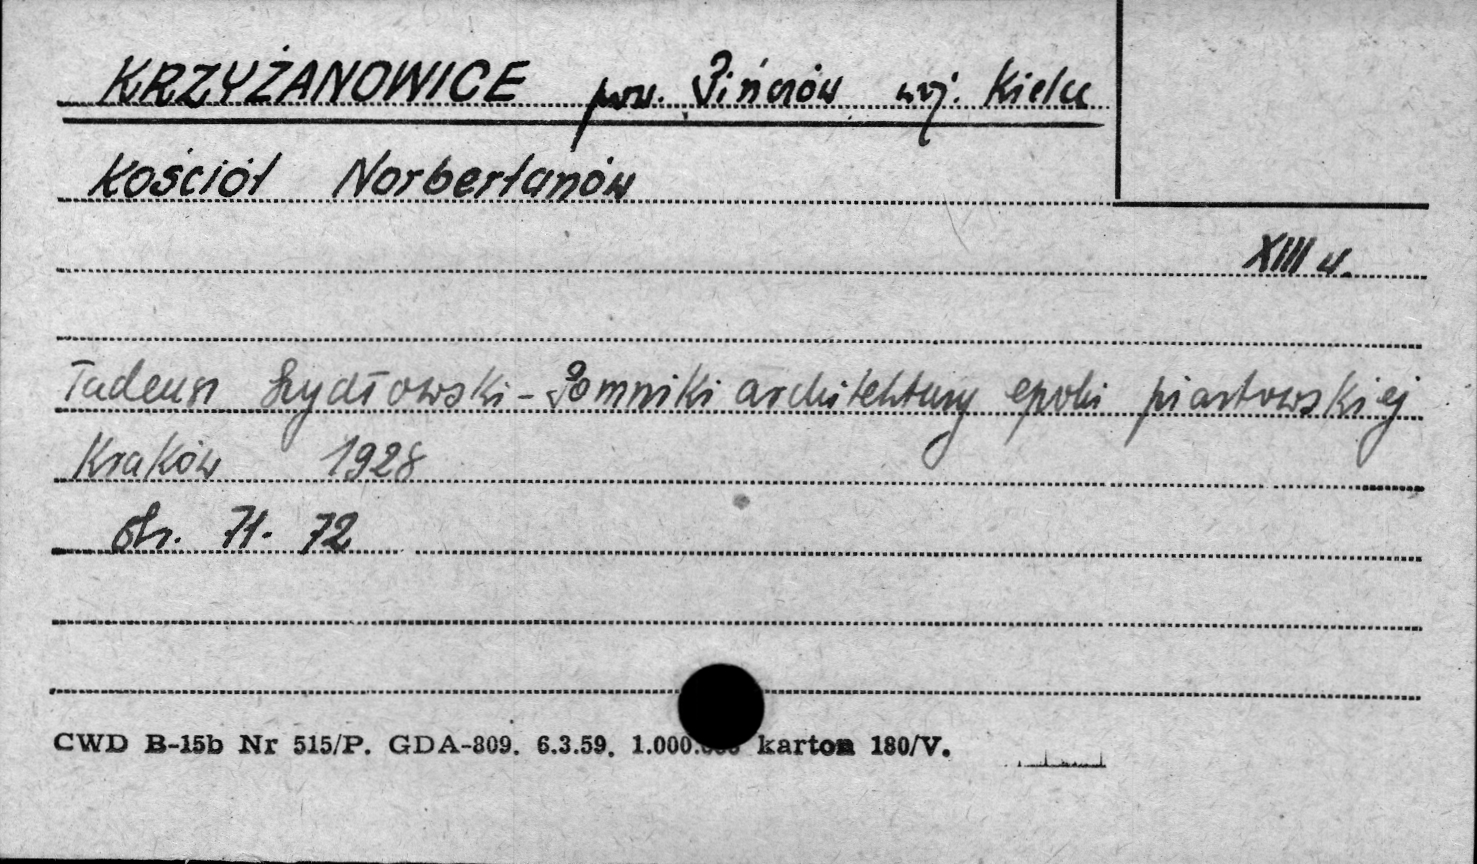 KRZYŻANOWICE pow. Pińczów woj. Kielce
Kościół Norbertanów
XIII w.
Tadeusz Szydłowski - Pomniki architektury epoki piastowskiej
Kraków 1928
str. 71-72
CWD B-15b Nr 515/P. GDA-809. 6.3.59. 1.000.000 karton 180/V.